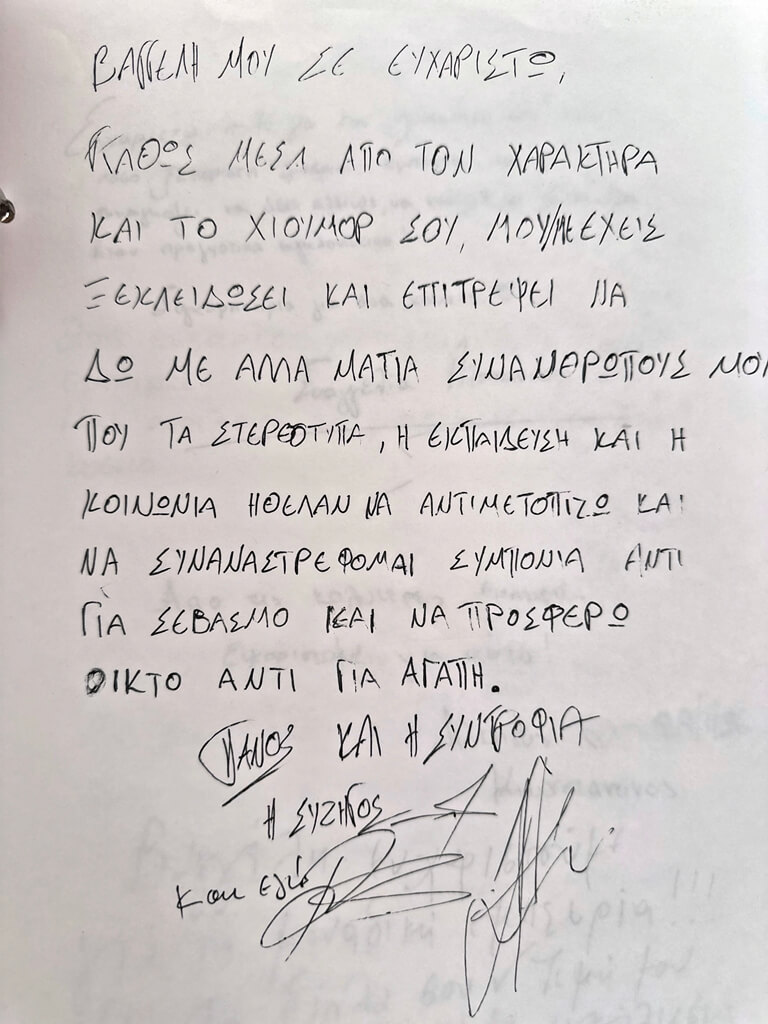 ΒΑΓΓΕΛΗ ΜΟΥ ΣΕ ΕΥΧΑΡΙΣΤΩ,
ΚΑΘΩΣ ΜΕΣΑ ΑΠΟ ΤΟΝ ΧΑΡΑΚΤΗΡΑ
ΚΑΙ ΤΟ ΧΙΟΥΜΟΡ ΣΟΥ, ΜΟΥ/ΜΕ ΕΧΕΙΣ
ΞΕΚΛΕΙΔΩΣΕΙ ΚΑΙ ΕΠΙΤΡΕΨΕΙ ΝΑ
ΔΩ ΜΕ ΑΛΛΑ ΜΑΤΙΑ ΣΥΝΑΝΘΡΩΠΟΥΣ ΜΟΥ
ΠΟΥ ΤΑ ΣΤΕΡΕΟΤΥΠΑ, Η ΕΚΠΑΙΔΕΥΣΗ ΚΑΙ Η
ΚΟΙΝΩΝΙΑ ΗΘΕΛΑΝ ΝΑ ΑΝΤΙΜΕΤΟΠΙΖΩ ΚΑΙ
ΝΑ ΣΥΝΑΝΑΣΤΡΕΦΟΜΑΙ ΣΥΜΠΟΝΙΑ ΑΝΤΙ
ΓΙΑ ΣΕΒΑΣΜΟ ΚΑΙ ΝΑ ΠΡΟΣΦΕΡΩ
ΟΙΚΤΟ ΑΝΤΙ ΓΙΑ ΑΓΑΠΗ.
ΠΑΝΟΣ ΚΑΙ Η ΣΥΝΤΡΟΦΙΑ
Η ΣΥΖΗΓΟΣ
και εγώ